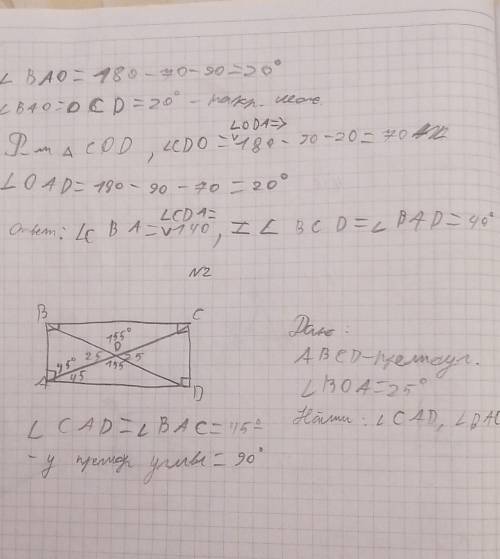 ∠ BAO = 180 - 70 - 90 = 20°
∠ BAO = OCD = 20° - накр. леж.
∠ODA =>
Рм △ COD, ∠CDO = 180 - 90 - 20 = 70
∠ OAD = 180 - 90 - 70 = 20°
∠CDA =
Ответ: ∠C B A = 140, ∠ B C D = ∠ BAD = 40°
N2
B
C
155°
O
25
25
45°
45
155
A
D
Дано:
ABCD - прямоуг.
∠BOA = 25°
Найти: ∠CAD, ∠BAC
∠ CAD = ∠BAC = 45°
- у прямоуг углы = 90°